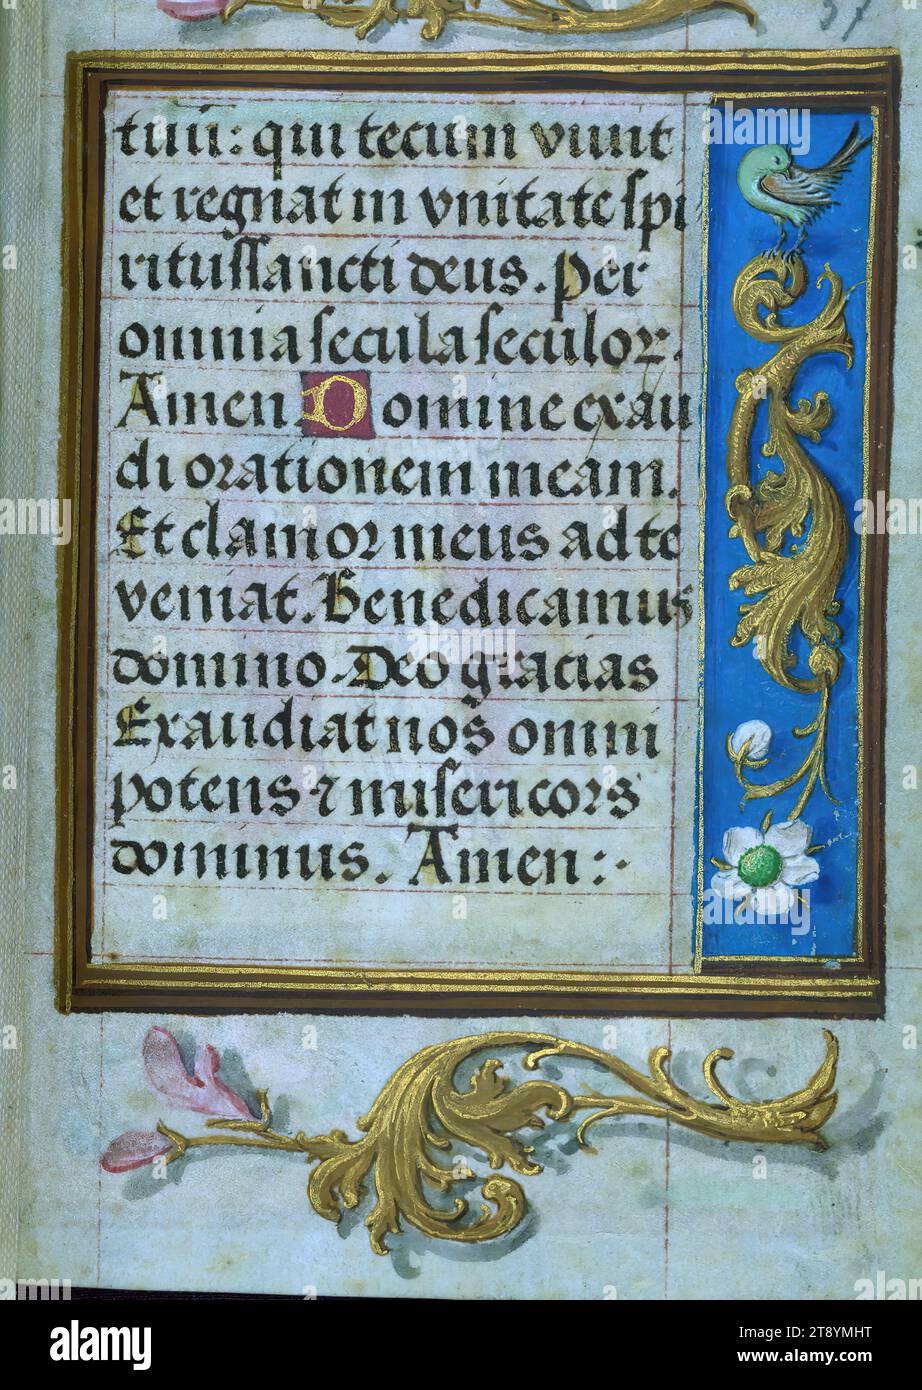 37
tuū: qui tecum viuit
et regnat in vnitate spi
ritussancti deus. Per
omnia secula seculoꝝ.
Amen. Domine exau
di orationem meam.
Et clamor meus ad te
veniat. Benedicamus
domino. Deo gracias
Exaudiat nos omni
potens ⁊ misericors
dominus. Amen:·
alamy
Image ID: 2T8YMHT
www.alamy.com